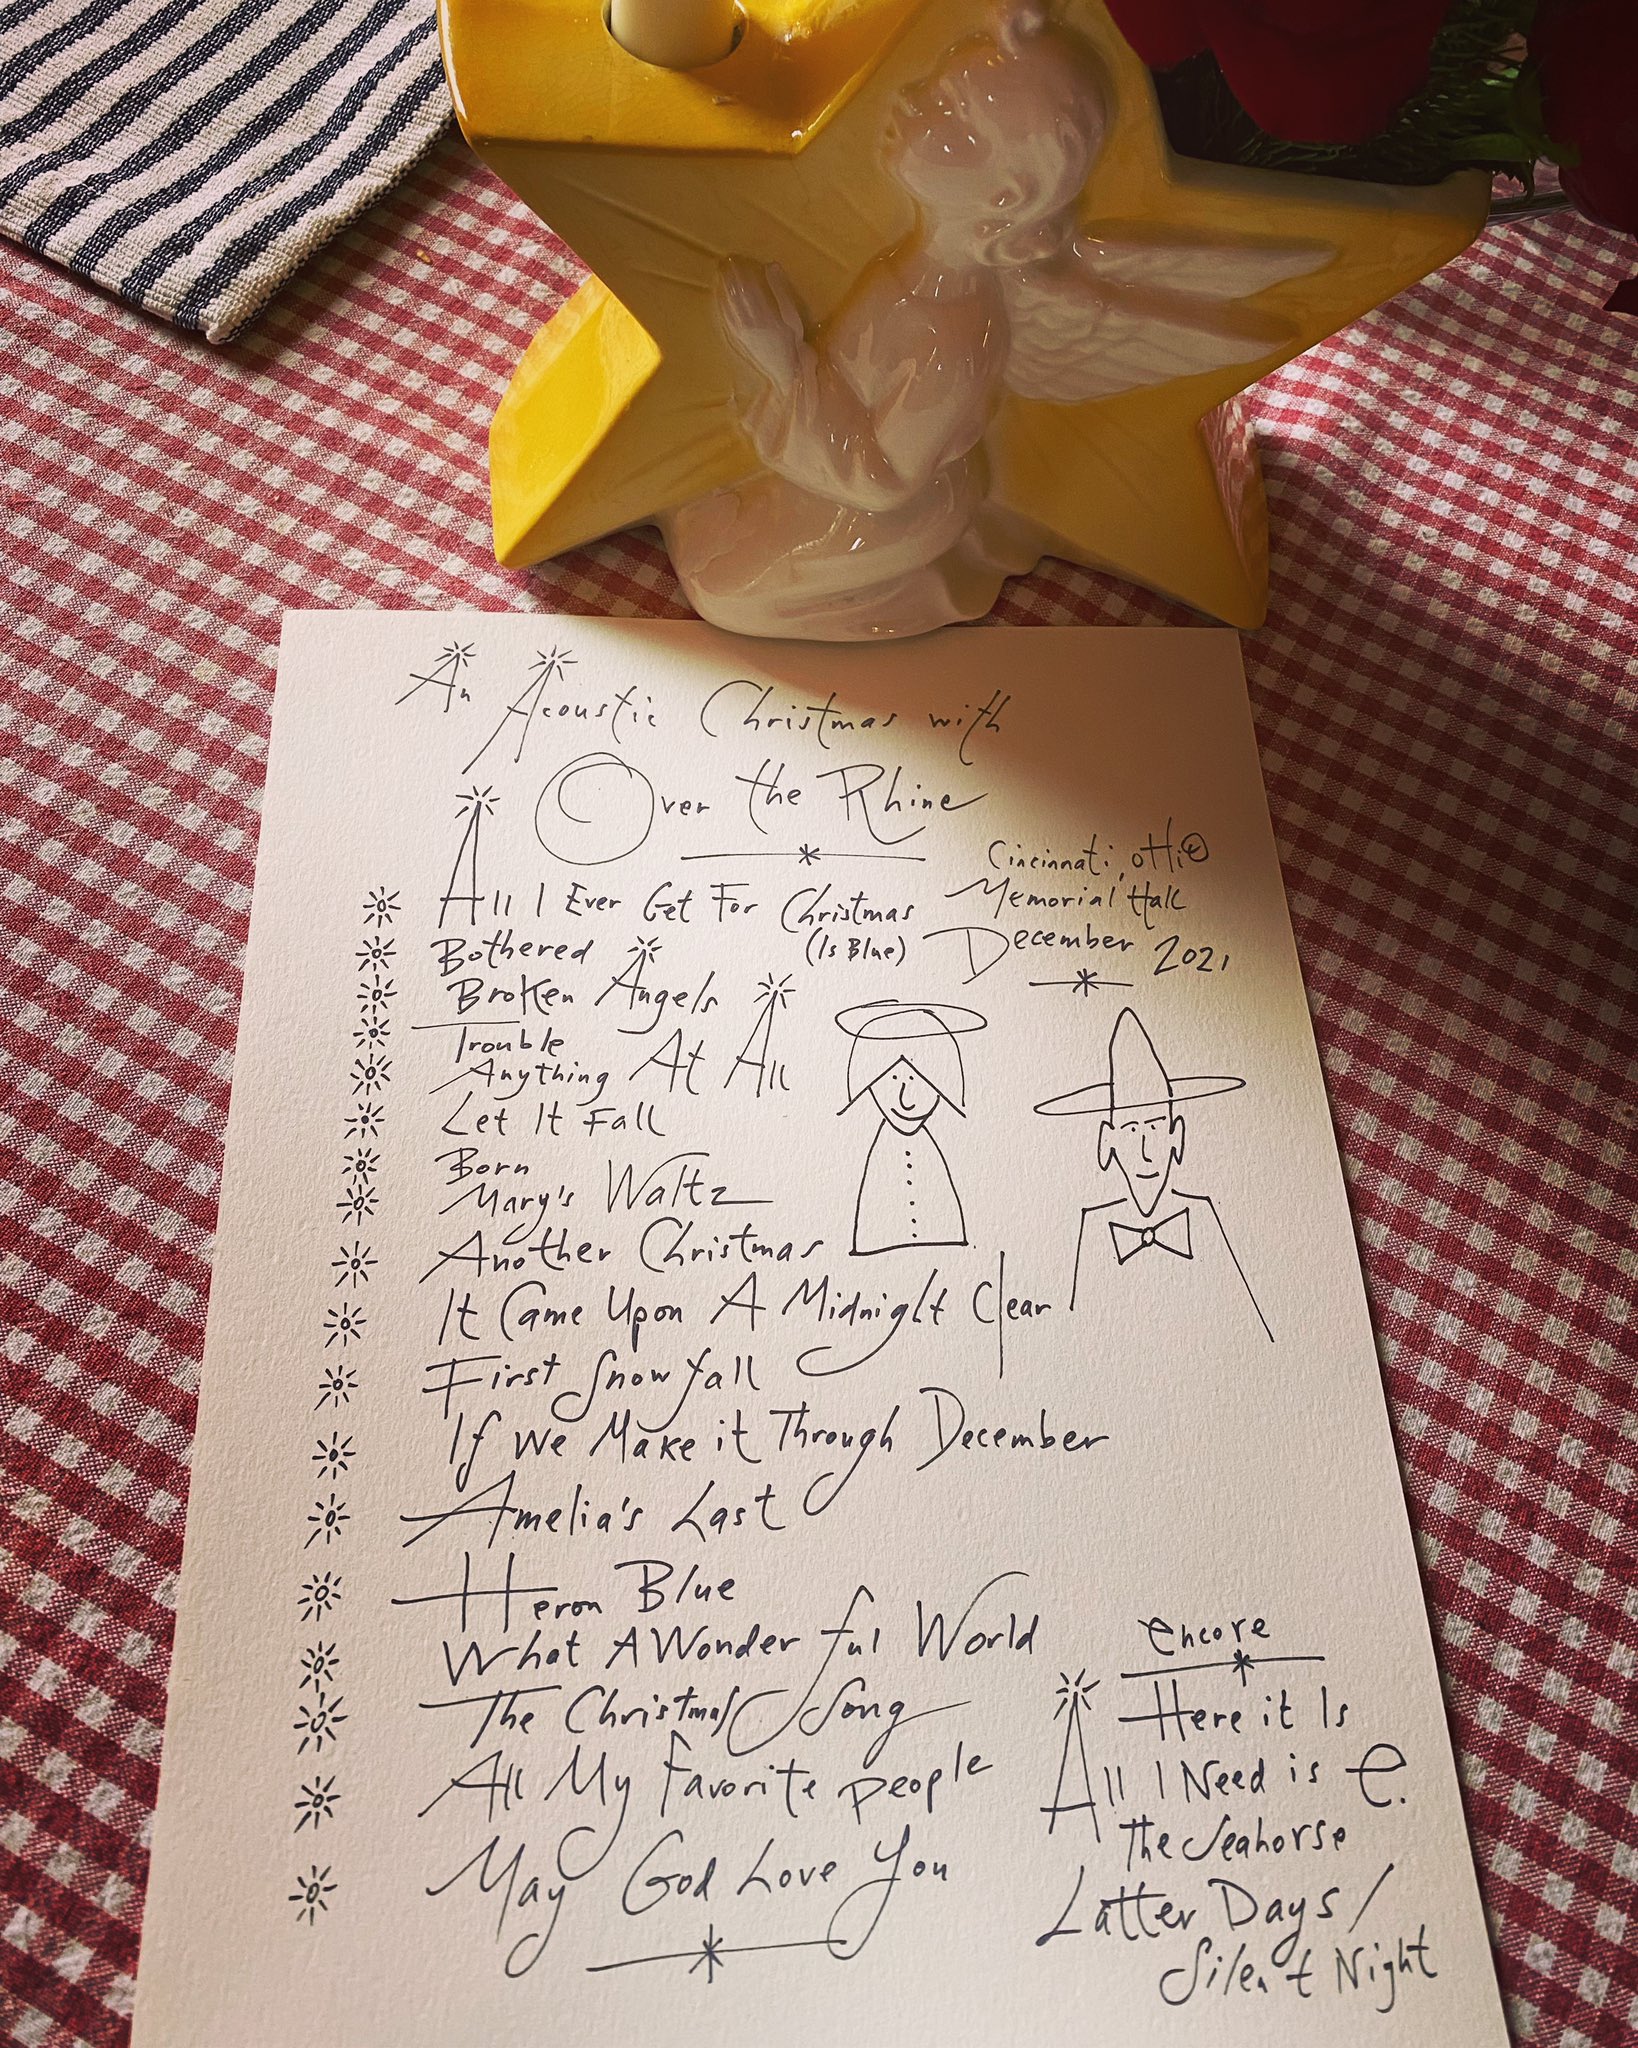 An Acoustic Christmas with
Over the Rhine
Cincinnati, OHiO
Memorial Hall
December 2021
All I Ever Get For Christmas
(Is Blue)
Bothered
Broken Angels
Trouble
Anything At All
Let It Fall
Born
Mary's Waltz
Another Christmas
It Came Upon A Midnight Clear
First Snowfall
If We Make it Through December
Amelia's Last
Heron Blue
What A Wonderful World
The Christmas Song
All My Favorite People
May God Love You
encore
Here it Is
All I Need is e.
The Seahorse
Latter Days/
Silent Night